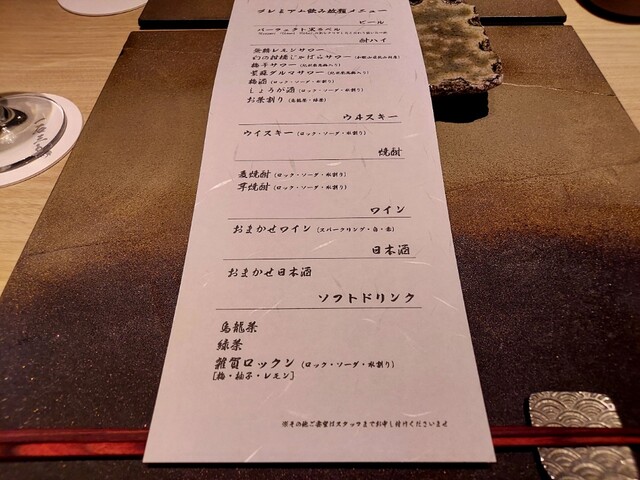 プレミアム飲み放題メニュー
ビール
パーフェクト黒ラベル
酎ハイ
レモンサワー
じゃばらサワー
梅干サワー
紫蘇ダルマサワー
梅酒(ロック・ソーダ・水割り)
しょうが酒(ロック・ソーダ・水割り)
お茶割り(烏龍茶・緑茶)
ウヰスキー
ウイスキー(ロック・ソーダ・水割り)
焼酎
麦焼酎(ロック・ソーダ・水割り)
芋焼酎(ロック・ソーダ・水割り)
ワイン
おまかせワイン(スパークリング・白・赤)
日本酒
おまかせ日本酒
ソフトドリンク
烏龍茶
緑茶
雑賀ロックン(ロック・ソーダ・水割り)
[梅・柚子・レモン]
※その他ご要望はスタッフまでお申し付けくださいませ